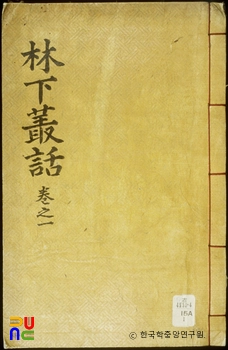 林下叢話
卷之一
15A
1
ⓒ 한국학중앙연구원